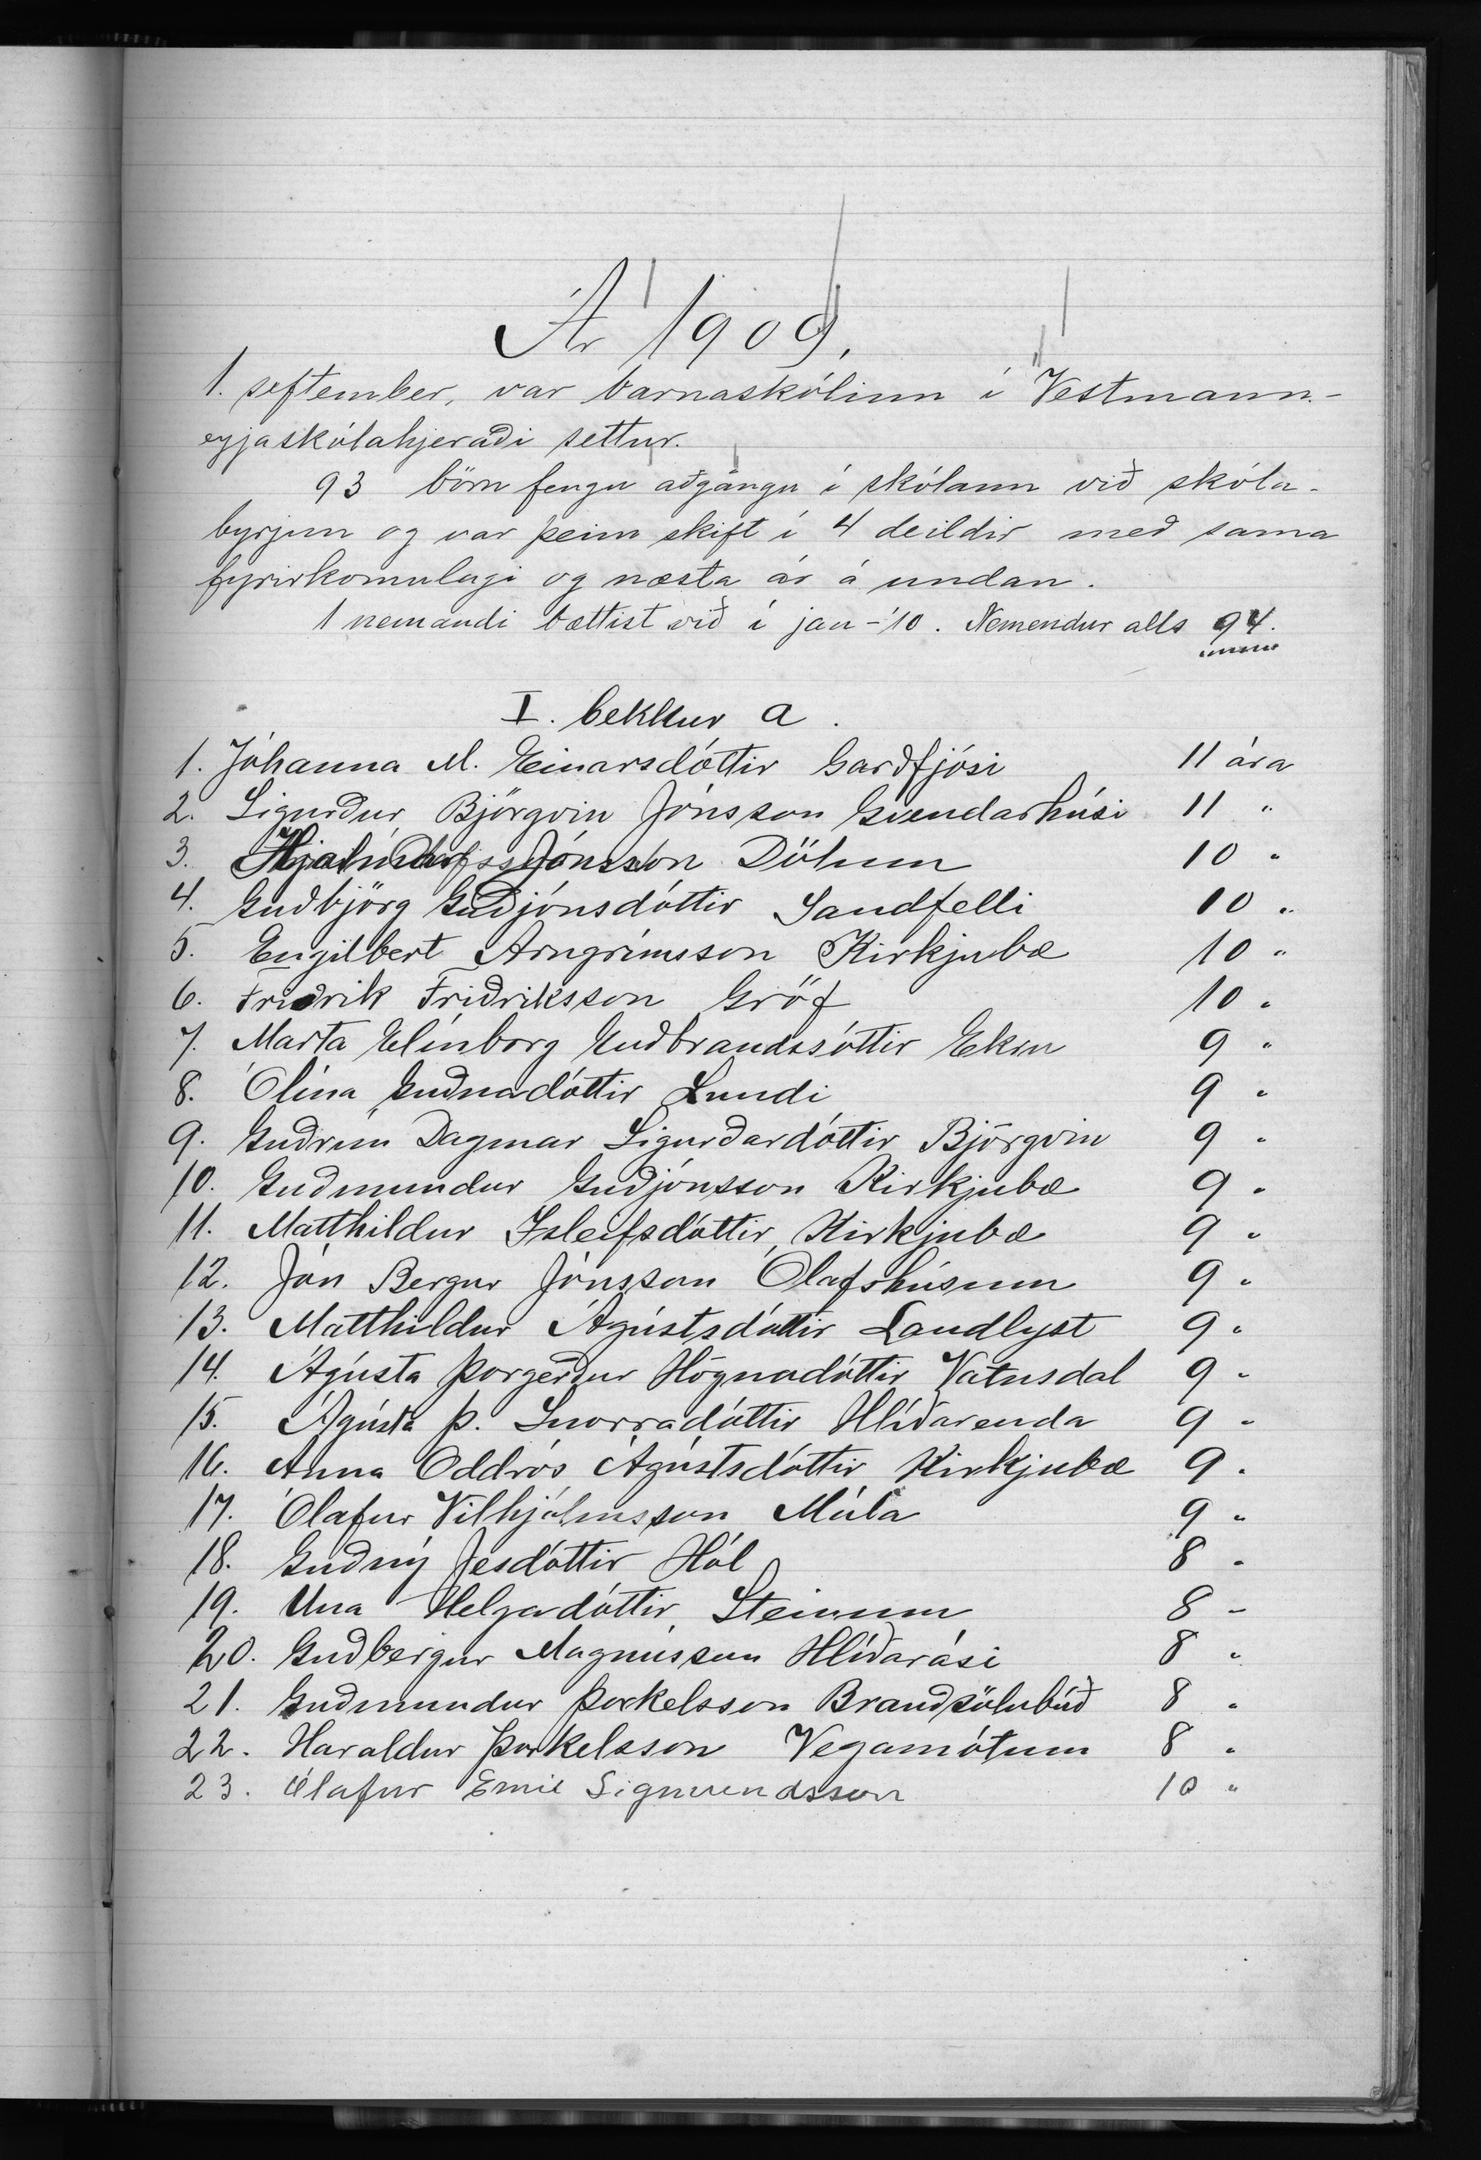 Ár 1909.
1. september, var barnaskólinn í Vestmann-
eyjaskólahjeraði settur.
93 börn fengu aðgöngu í skólann við skóla-
byrjun og var þeim skift í 4 deildir með sama
fyrirkomulagi og næsta ár á undan.
1 nemandi bættist við í jan-'10. Nemendur alls 94.
I. bekkur a.
1. Jóhanna M. Einarsdóttir Garðfjósi 11 ára
2. Sigurður Björgvin Jónsson Gvendarhúsi 11 "
3. Jónsson Dölum 10 "
4. Guðbjörg Guðjónsdóttir Sandfelli 10 "
5. Engilbert Arngrímsson Kirkjubæ 10 "
6. Friðrik Friðriksson Gröf 10 "
7. Marta Elínborg Guðbrandssóttir Ekru 9 "
8. Ólína Guðnadóttir Lundi 9 "
9. Guðrún Dagmar Sigurðardóttir Björgvin 9 "
10. Guðmundur Guðjónsson Kirkjubæ 9 "
11. Matthildur Ísleifsdóttir Kirkjubæ 9 "
12. Jón Bergur Jónsson Ólafshúsum 9 "
13. Matthildur Ágústsdóttir Landlyst 9 "
14. Ágústa Þorgerður Högnadóttir Vatnsdal 9 "
15. Ágústa Þ. Snorradóttir Hlíðarenda 9 "
16. Anna Oddrós Ágústsdóttir Kirkjubæ 9 "
17. Ólafur Vilhjálmsson Múla 9 "
18. Guðný Jesdóttir Hól 8 "
19. Una Helgadóttir Steinum 8 "
20. Guðbergur Magnússon Hlíðarási 8 "
21. Guðmundur Þorkelsson Brandsölubúð 8 "
22. Haraldur Þorkelsson Vegamótum 8 "
23. Ólafur Emil Sigmundsson 10 "